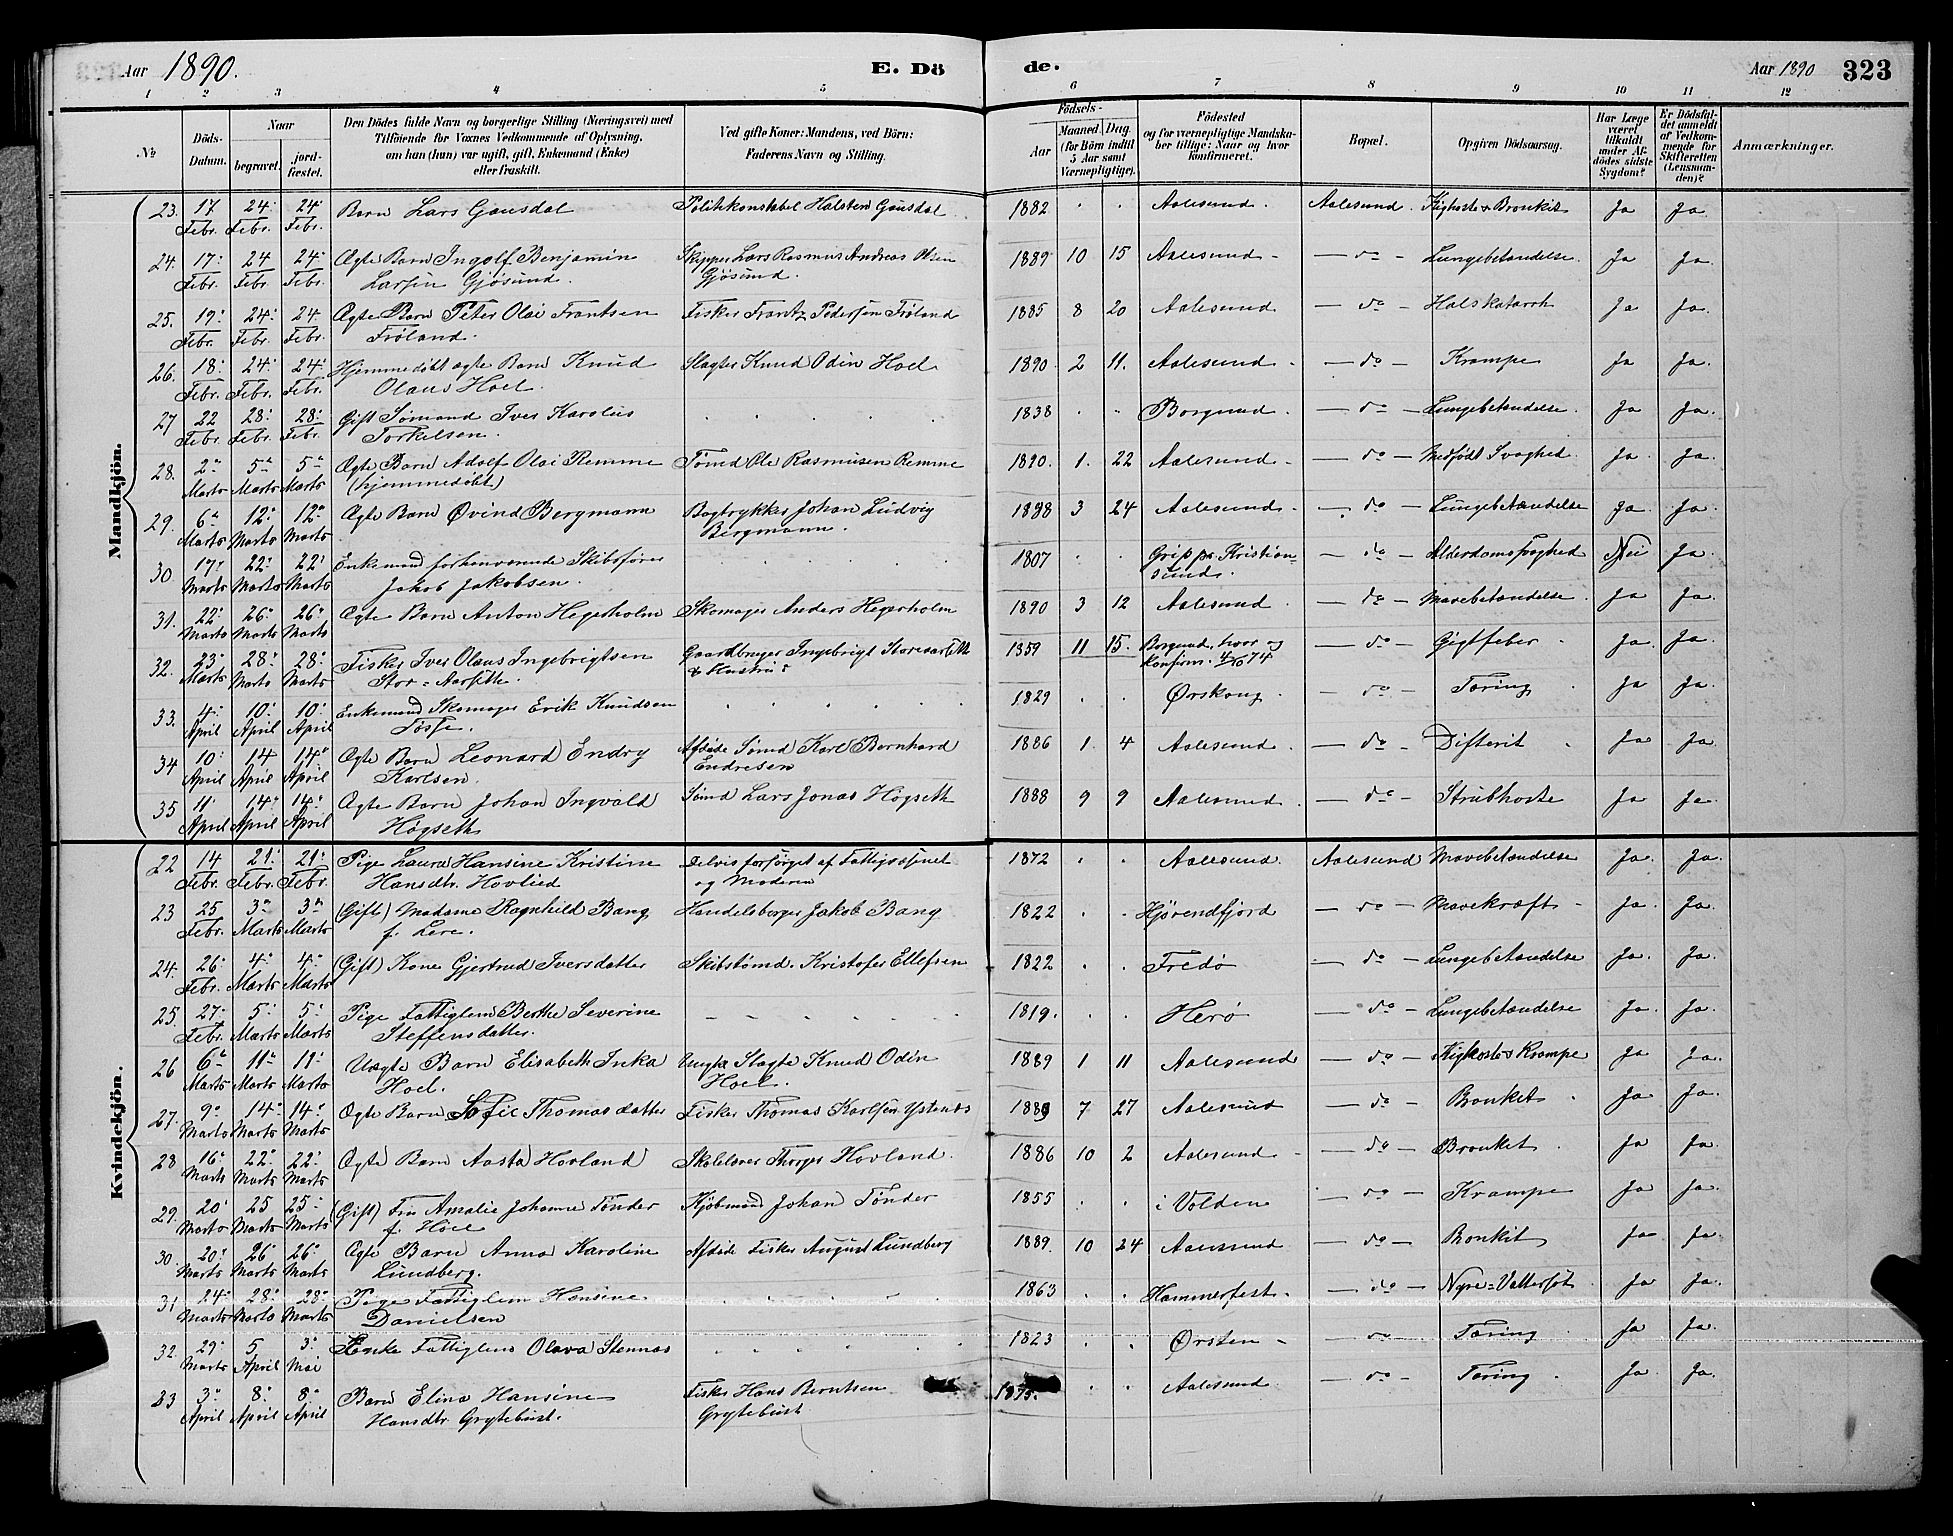 Aar 1890. E. Dö
de. Aar 1890 323
1 2 3 4 5 6 7 8 9 10 11 12
№ Döds-Datum. Naar begravet. jord-fæstet. Den Dödes fulde Navn og borgerlige Stilling (Næringsvei) med Tilföiende for Voxnes Vedkommende af Oplysning, om han (hun) var ugift, gift, Enkemand (Enke) eller fraskilt. Ved gifte Koner: Mandens, ved Börn: Faderens Navn og Stilling. Födsels- Aar Maaned. Dag. (for Börn indtil 5 Aar samt Værnepligtige). Födested og for værnepligtige Mandskaber tillige: Naar og hvor konfirmeret. Bopæl. Opgiven Dödsaarsag. Har Læge været tilkaldt under Afdödes sidste Sygdom? Er Dödsfaldet anmeldt af Vedkommende for Skifteretten (Lensmanden)? Anmærkninger.
Mandkjön.
23. 17 Febr. 24 Febr. 24 Febr. Barn Lars Gausdal Politikonstabel Halsten Gausdal 1882 Aalesund. Aalesund. Kighoste & Bronkit Ja Ja.
24. 17 Febr. 24 Febr. 24 Febr. Ægte Barn Ingolf Benjamin Skipper Lars Rasmus Andreas Olsen 1889 10 15 Aalesund - do - Lungebetændelse. Ja Ja.
Larsen Gjösund. Gjösund.
25. 19 Febr. 24 Febr. 24 Febr. Ægte Barn Peter Olai Frantsen Fisker Frantz Pedersen Fröland 1885 8 20 Aalesund - do - Halskatarrh Ja Ja.
Fröland.
26. 18 Febr. 24 Febr. 24 Febr. Hjemmedöbt ægte Barn Knud Slagter Knud Odin Hoel 1890 2 11. Aalesund - do - Krampe Ja Ja.
Olaus Hoel.
27 22 Febr. 28 Febr. 28 Febr. Gift Sömand Iver Karolus 1838 Borgund - do - Lungebetændelse. Ja Ja.
Torkelsen.
28. 2 Marts 5 Marts 5 Marts Ægte Barn Adolf Olai Remme Tömd Ole Rasmusen Remme 1890. 1. 22 Aalesund - do - Medfödt Svaghed Ja. Ja.
(hjemmedöbt)
29. 6 Marts 12 Marts 12 Marts Ægte Barn Øvind Bergmann Bogtrykker Johan Ludvig 1888 3 24 Aalesund - do - Lungebetændelse Ja Ja.
Bergmann.
30. 17 Marts 22 Marts 22 Marts Enkemand forhenværende Skibsförer 1807 Grip pr. Kristian- - do - Alderdomssvaghed Nei Ja.
Jakob Jakobsen. sund.
31. 22 Marts 26 Marts 26 Marts Ægte Barn Anton Hegerholm Skomager Anders Hegerholm 1890 3 12 Aalesund - do - Mavebetændelse. Ja Ja.
32. 23 Marts 28 Marts 28 Marts Fisker Iver Olaus Ingebrigtsen Gaardbruger Ingebrigt 1859 11 15. Borgund, hvor og - do - Gigtfeber Ja. Ja.
Stor-Aarsethe. konfirm. 4/10 74
33. 4 April 10 April 10 April Enkemand Skomager Erik Knudsen 1829 Ørskoug - do - Tæring Ja Ja.
Tösse.
34 10 April 14 April 14 April Ægte Barn Leonard Endry Afdöde Sömd Karl Bernhard 1886 1. 4 Aalesund. - do - Difterit Ja Ja.
Karlsen. Endresen
35 11 April 14 April 14 April Ægte Barn Johan Ingvald Sömd Lars Jonas Högseth 1888 9 9 Aalesund - do - Strubhoste Ja Ja.
Högseth
Kvindekjön.
22 14 Febr. 21 Febr. 21 Febr. Pige Laura Hansine Kristine Delvis forsörget af Fattigvæsnet 1872 Aalesund. Aalesund Mavebetændelse Ja. Ja.
Hansdtr. Hovlied og Moderen
23 25 Febr. 3 Marts 3 Marts (Gift) Madame Ragnhild Bang Handelsborger Jakob Bang 1822 Hjörendfjord - do - Mavekræft - Ja. Ja.
f. Lere.
24. 26 Febr. 4 Marts 4 Marts (Gift) Kone Gjertrud Iversdatter Skibstömd. Kristofer Ellefsen 1822 Fredö - do - Lungebetændelse Ja. Ja.
25. 27 Febr. 5 Marts 5 Marts Pige Fattiglem Berthe Severine 1819. Herö - do - Lungebetændelse Ja. Ja.
Steffensdatter.
26 6 Marts 11 Marts 11 Marts Uægte Barn Elisabeth Inka Ungk. Slagte Knud Odin 1889 1 11 Aalesund - do - Kighoste & Krampe Ja Ja.
Hoel. Hoel.
27. 9 Marts 14 Marts 14 Marts Ægte Barn Sofie Thomasdatter Fisker Thomas Karlsen Ystenes 1889 7 27 Aalesund - do - Bronket Ja Ja.
28 16 Marts 22 Marts 22 Marts Ægte Barn Aasta Hovland Skolelærer Thorger Hovland. 1886 10 2 Aalesund - do - Bronket Ja Ja.
29. 20 Marts 25 Marts 25 Marts (Gift) Fru Amalie Johanne Tönder Kjöbmand Johan Tönder 1855 i Volden - do - Krampe Ja Ja.
f. Hoel
30. 20 Marts 26 Marts 26 Marts Ægte Barn Anna Karoline Afdöde Fisker August Lundberg 1889. 10 24 Aalesund - do - Bronkit Ja Ja.
Lundberg.
31 24 Marts 28 Marts 28 Marts Pige Fattiglem Hansine 1863 Hammerfest - do - Nyre-Vattersot Ja Ja.
Danielsen
32. 29 Marts 5 April 3 Mai Enke Fattiglem Olava Stennes 1823 Ørsten - do - Tæring Ja Ja.
33 3 April 8 April 8 April Barn Elina Hansine Fisker Hans Berntsen 1875. Aalesund. - do - Tæring Ja Ja.
Hansdtr. Grytebust. Grytebust